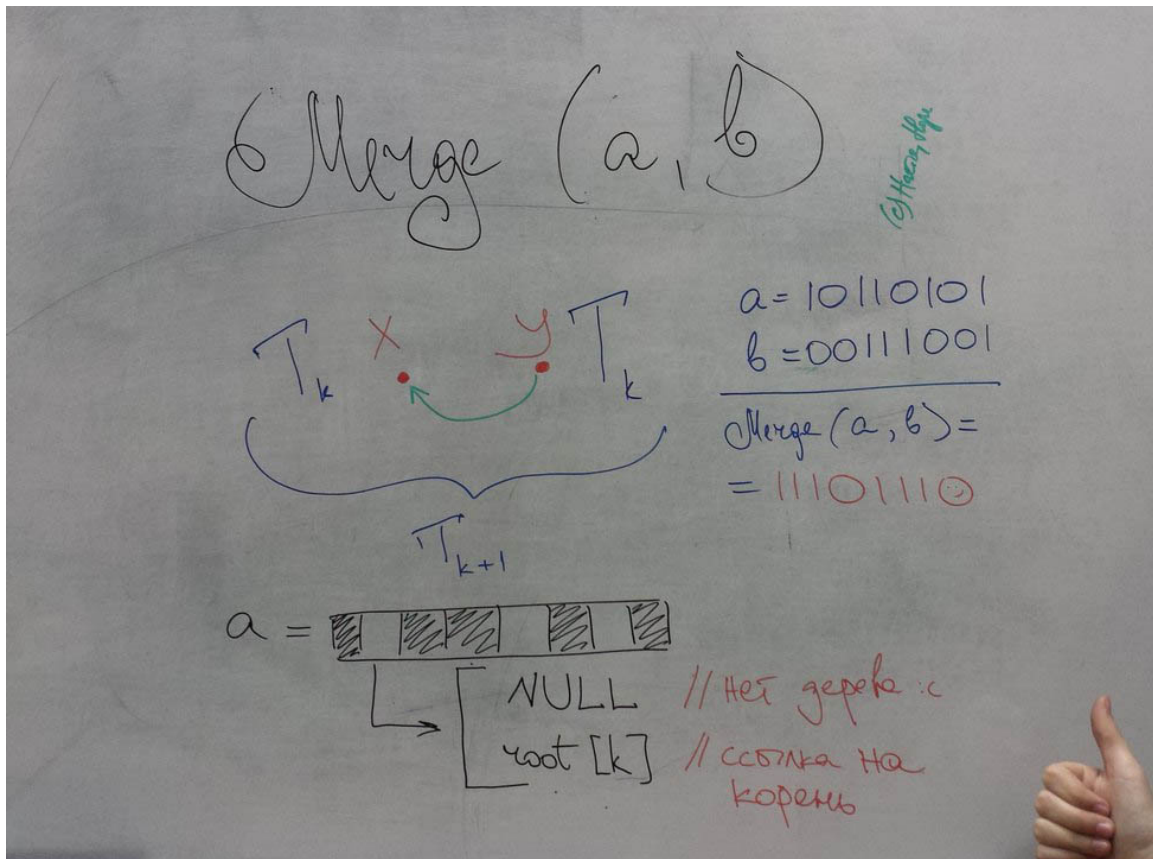 Merge (a, b)
(c)
T_k x y T_k
T_{k+1}
a = 10110101
b = 00111001
Merge (a, b) =
= 11101110
a =
NULL // нет дерева :c
root [k] // ссылка на
корень